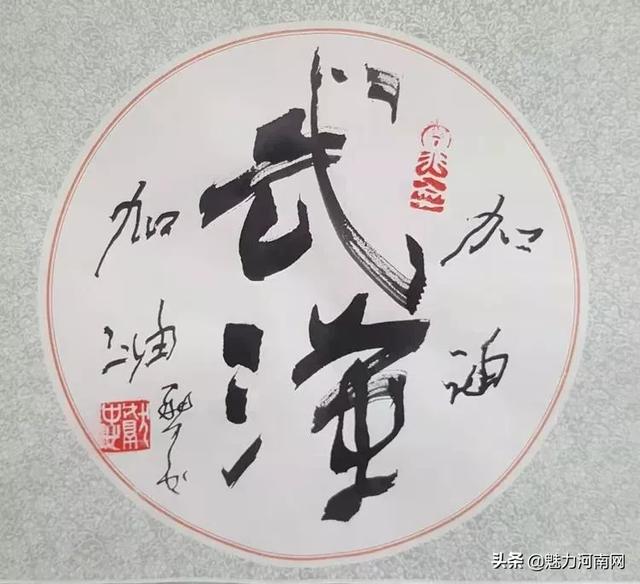 加油
武漢
加油
头条 @魅力河南网